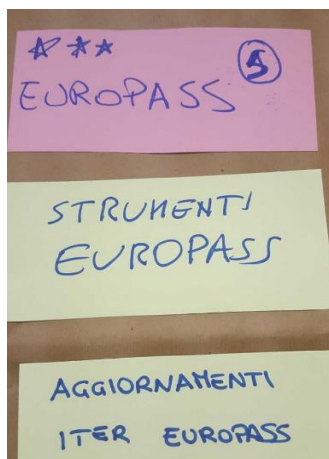 ☆☆☆
5
EUROPASS
STRUMENTI
EUROPASS
AGGIORNAMENTI
ITER EUROPASS